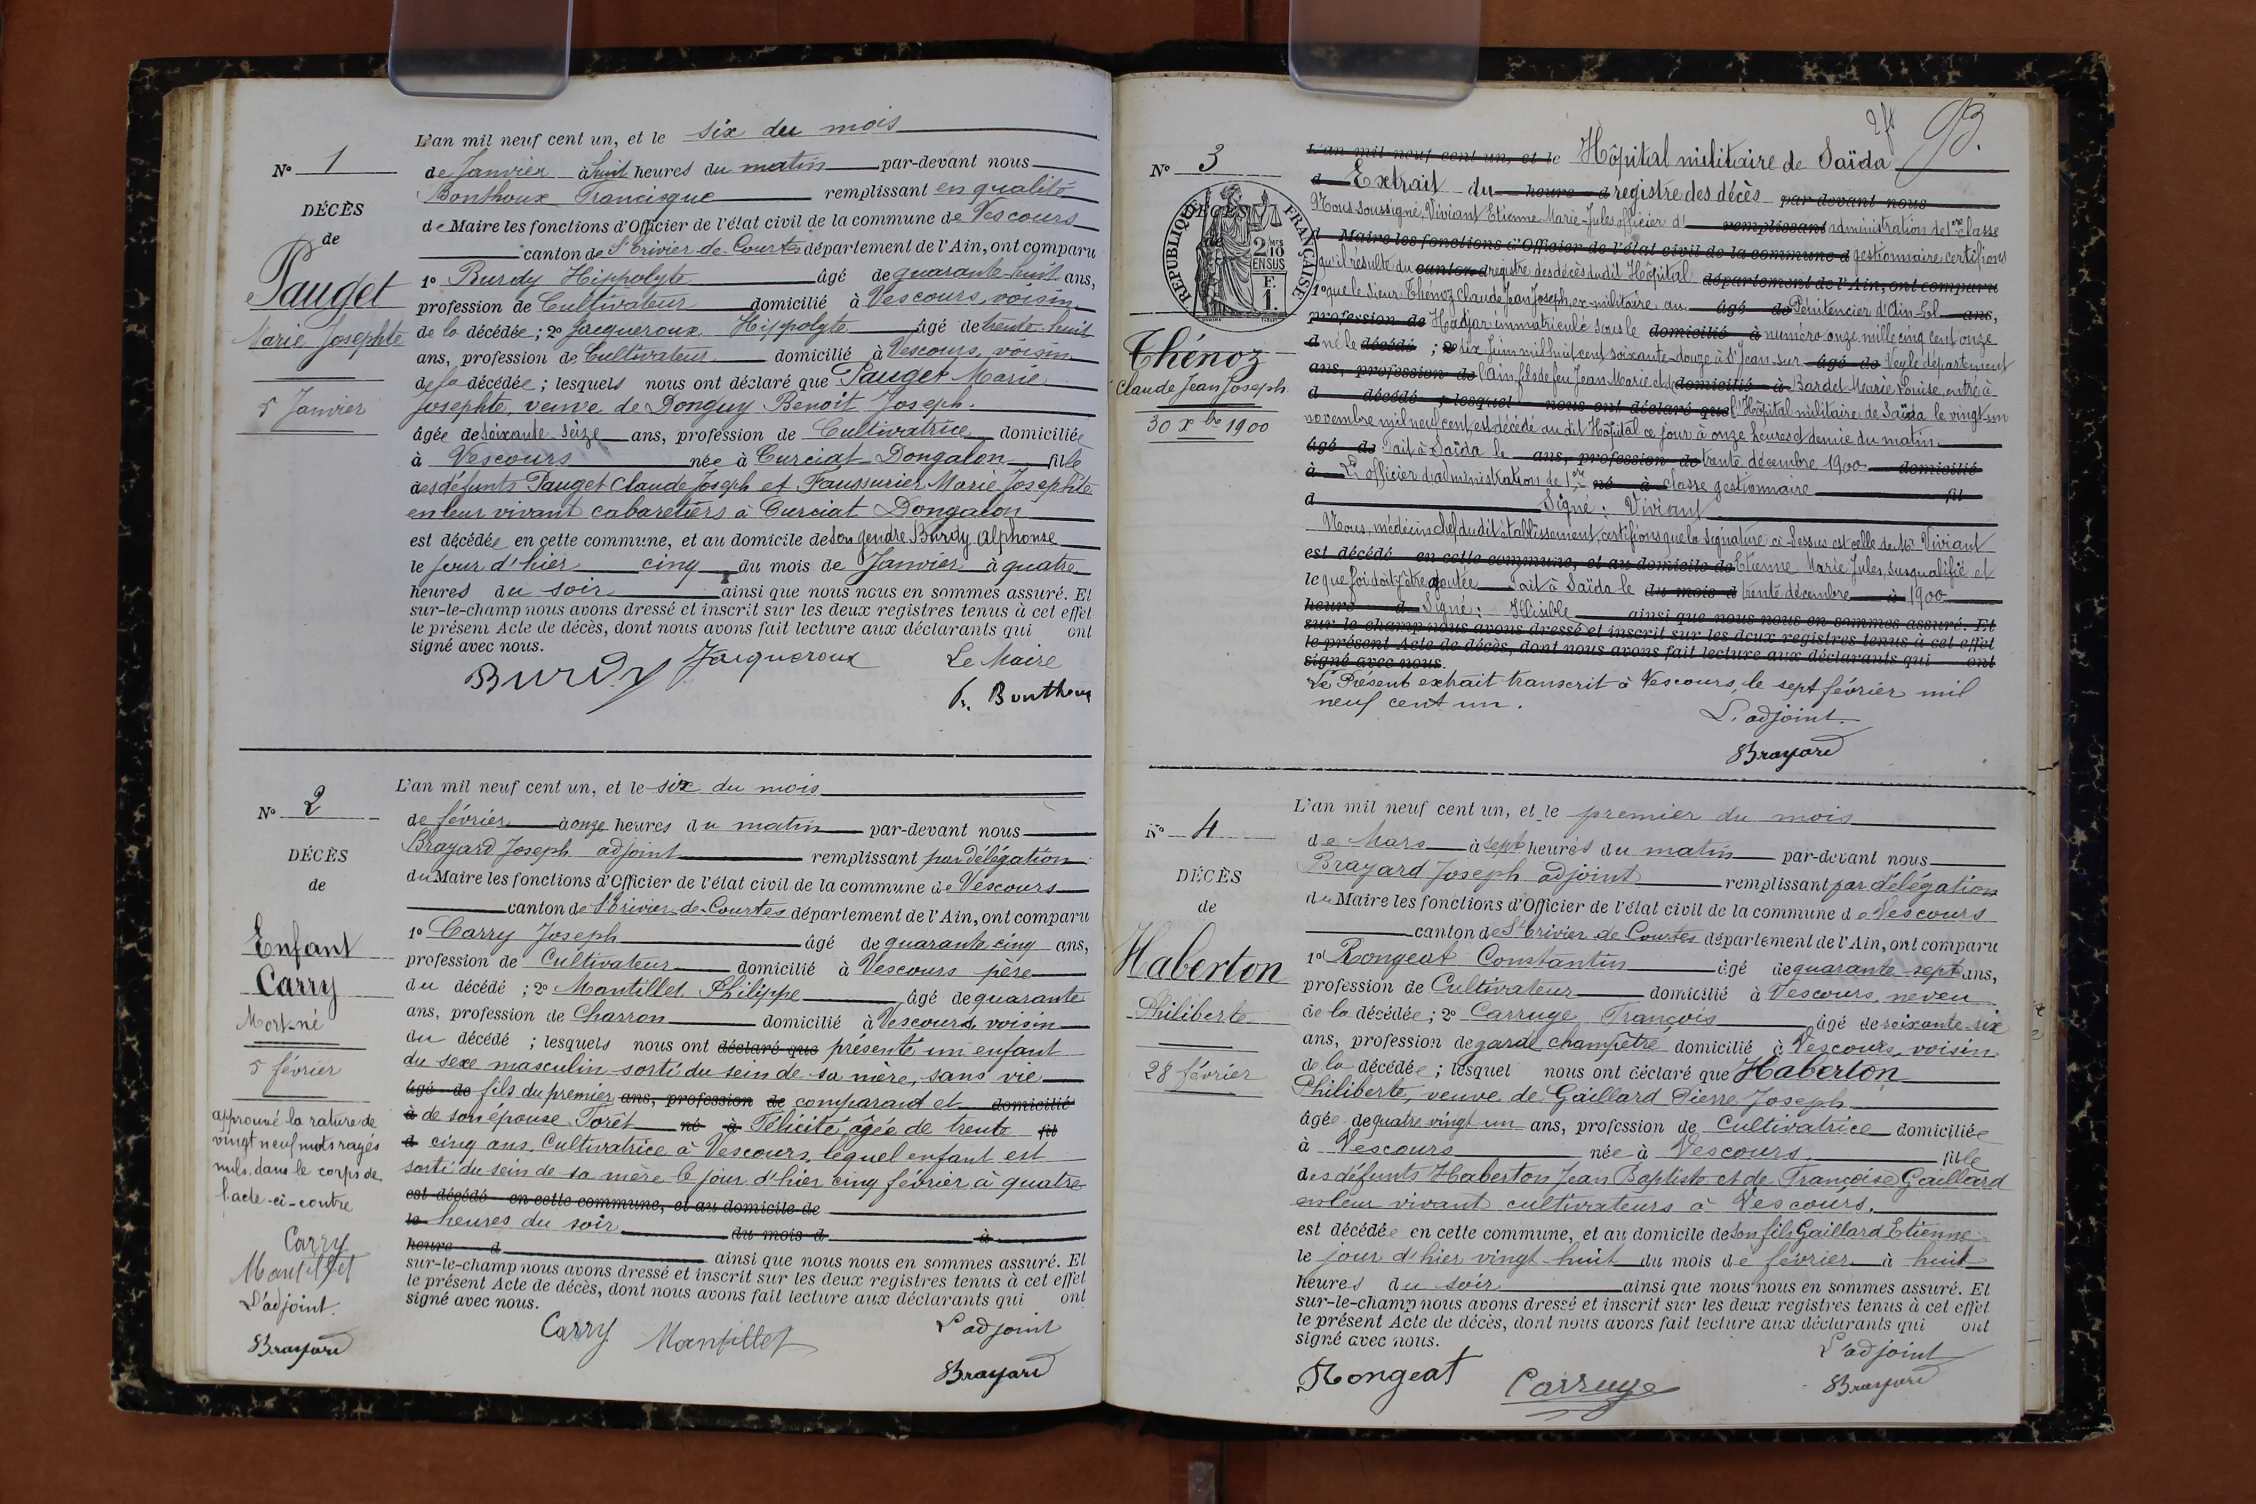 L'an mil neuf cent un, et le six du mois
N° 1
de Janvier à huit heures du matin par-devant nous
Bonthoux Francisque remplissant en qualité
DÉCÈS
de Maire les fonctions d'Officier de l'état civil de la commune de Vescours
de
canton de St Trivier-de-Courtes département de l'Ain, ont comparu
Pauget
1° Burdy Hippolyte âgé de quarante-huit ans,
profession de Cultivateur domicilié à Vescours, voisin
Marie Josephte
de la décédée ; 2° Jacqueroux Hippolyte âgé de trente-huit
ans, profession de Cultivateur domicilié à Vescours, voisin
de la décédée ; lesquels nous ont déclaré que Pauget Marie
5 Janvier
Josephte, veuve de Donguy Benoit Joseph.
âgée de soixante-seize ans, profession de Cultivatrice domiciliée
à Vescours née à Curciat-Dongalon fille
des défunts Pauget Claude Joseph et Faussurier Marie Josephte
en leur vivant cabaretiers à Curciat Dongalon
est décédée en cette commune, et au domicile de son gendre Burdy Alphonse
le jour d'hier cinq du mois de Janvier à quatre
heures du soir ainsi que nous nous en sommes assuré. Et
sur-le-champ nous avons dressé et inscrit sur les deux registres tenus à cet effet
le présent Acte de décès, dont nous avons fait lecture aux déclarants qui ont
signé avec nous.
Burdy Jacqueroux Le Maire
F. Bonthoux
L'an mil neuf cent un, et le six du mois
N° 2
de février à onze heures du matin par-devant nous
Brayard Joseph adjoint remplissant par délégation
DÉCÈS
du Maire les fonctions d'Officier de l'état civil de la commune de Vescours
de
canton de St Trivier-de-Courtes département de l'Ain, ont comparu
Enfant
1° Carry Joseph âgé de quarante cinq ans,
Carry
profession de Cultivateur domicilié à Vescours père
Mort-né
du décédé ; 2° Mantillet Philippe âgé de quarante
ans, profession de Charron domicilié à Vescours, voisin
5 février
du décédé ; lesquels nous ont déclaré que présenté un enfant
du sexe masculin sorti du sein de sa mère, sans vie
âgé de fils du premier ans, profession de comparant et domicilié
à de son épouse Torêt né à Félicité, âgée de trente fil
d cinq ans, Cultivatrice à Vescours, lequel enfant est
sorti du sein de sa mère le jour d'hier cinq février à quatre
est décédé en cette commune, et au domicile de
le heures du soir du mois d à
heure d ainsi que nous nous en sommes assuré. Et
sur-le-champ nous avons dressé et inscrit sur les deux registres tenus à cet effet
le présent Acte de décès, dont nous avons fait lecture aux déclarants qui ont
signé avec nous.
approuvé la rature de
vingt neuf mots rayés
nuls, dans le corps de
l'acte ci-contre
Carry
Mantillet
L'adjoint.
Brayard
Carry Mantillet L'adjoint
Brayard
93.
L'an mil neuf cent un, et le Hôpital militaire de Saïda
N° 3
d Extrait du heure d registre des décès par-devant nous
Nous soussigné, Viviant Etienne Marie-Jules officier d' remplissant administration de 1ère classe
DÉCÈS
de
RÉPUBLIQUE FRANÇAISE
2/10 EN SUS
F.
1
d Maire les fonctions d'Officier de l'état civil de la commune d gestionnaire certifions
qu'il résulte du canton d registre des décès dudit Hôpital département de l'Ain, ont comparu
1° que le sieur Thénoz Claude Jean Joseph, ex-militaire au âgé de Pénitencier d'Ain-El ans,
profession de Hadjar immatriculé sous le domicilié à numéro onze mille cinq cent onze
Thénoz
Claude Jean Joseph
30 xbre 1900
d né le décédé ; 2° six juin mil huit cent soixante-douze à St Jean-sur âgé de Veyle département
ans, profession de l'Ain, fils de feu Jean Marie et de domicilié à Bardet Marie Louise, entré à
d décédé ; lesquel nous ont déclaré que l'Hôpital militaire de Saïda le vingt un
novembre mil neuf cent, est décédé au dit Hôpital ce jour à onze heures et demie du matin.
âgé de Fait à Saïda le ans, profession de trente décembre 1900 domicilié
à L'officier d'administration de 1ère né à classe gestionnaire fil
d Signé : Viviant
Nous, médecin chef du dit établissement, certifions que la signature ci-dessus est celle de Mr Viviant
est décédé en cette commune, et au domicile de Etienne Marie Jules, susqualifié et
le que foi doit y être ajoutée Fait à Saïda le du mois d trente décembre à 1900
heure d Signé : Illisible ainsi que nous nous en sommes assuré. Et
sur-le-champ nous avons dressé et inscrit sur les deux registres tenus à cet effet
le présent Acte de décès, dont nous avons fait lecture aux déclarants qui ont
signé avec nous.
Le Présent extrait transcrit à Vescours, le sept février mil
neuf cent un.
L'adjoint.
Brayard
L'an mil neuf cent un, et le premier du mois
N° 4
de Mars à sept heures du matin par-devant nous
Brayard Joseph adjoint remplissant par délégation
DÉCÈS
du Maire les fonctions d'Officier de l'état civil de la commune de Vescours
de
canton de St Trivier de Courtes département de l'Ain, ont comparu
Haberton
1° Rongeat Constantin âgé de quarante-sept ans,
profession de Cultivateur domicilié à Vescours, neveu
Philiberte
de la décédée ; 2° Carruge François âgé de soixante-six
ans, profession de garde champêtre domicilié à Vescours, voisin
28 février
de la décédée ; lesquel nous ont déclaré que Haberton
Philiberte, veuve de Gaillard Pierre Joseph
âgée de quatre vingt un ans, profession de Cultivatrice domiciliée
à Vescours née à Vescours. fille
des défunts Haberton Jean Baptiste et de Françoise Gaillard
en leur vivant cultivateurs à Vescours.
est décédée en cette commune, et au domicile de son fils Gaillard Etienne
le jour d'hier vingt-huit du mois de février à huit
heures du soir ainsi que nous nous en sommes assuré. Et
sur-le-champ nous avons dressé et inscrit sur les deux registres tenus à cet effet
le présent Acte de décès, dont nous avons fait lecture aux déclarants qui ont
signé avec nous.
L'adjoint
Rongeat Carruge Brayard